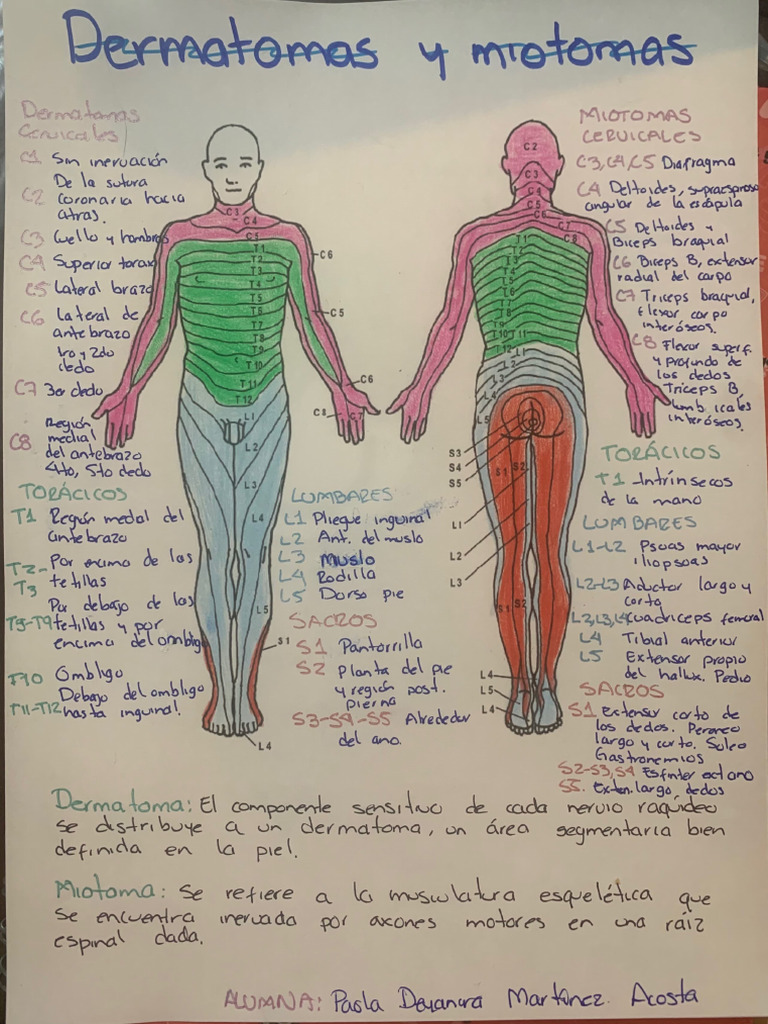 Dermatomas y miotomas
Dermatomas
Cervicales
C1 Sin inervación
De la sutura
C2 coronaria hacia
atras.
C3 Cuello y hombros
C4 Superior torax
C5 Lateral brazo
C6 Lateral de
antebrazo
1ro y 2do
dedo
C7 3er dedo
Región
medial
C8 del antebrazo
4to, 5to dedo
TORÁCICOS
T1 Región medal del
antebrazo
T2- Por encima de las
T3 tetillas
Por debajo de las
T5-T9 tetillas y por
encima del ombligo
T10 Ombligo
Debajo del ombligo
T11-T12 hasta inguinal.
C3
C4
C5
T1
T2
T3
T4
T5
T6
T7
T8
T9
T10
T11
T12
L1
L2
L3
L4
L5
S1
L4
C6
C5
C6
C8
C7
LUMBARES
L1 Pliegue inguinal
L2 Ant. del muslo
L3 Muslo
L4 Rodilla
L5 Dorso pie
SACROS
S1 Pantorrilla
S2 Planta del pie
y región post.
pierna
S3-S4-S5 Alrededor
del ano.
C2
C3
C4
C5
C6
C7
C8
T1
T2
T3
T4
T5
T6
T7
T8
T9
T10 T11
T12 L1
L2
L3
L4
L5
S3
S4
S5
S1 S2
L1
L2
L3
S1 S2
L4
L5
L4
MIOTOMAS
CERVICALES
C3, C4, C5 Diafragma
C4 Deltoides, supraespinoso
angular de la escápula
C5 Deltoides y
Biceps braquial
C6 Biceps B, extensor
radial del carpo
C7 Triceps braquial,
flexor carpo
interóseos.
C8 Flexor superf.
y profundo de
los dedos
Triceps B,
lumbricales
interóseos.
TORÁCICOS
T1 Intrínsecos
de la mano
LUMBARES
L1-L2 Psoas mayor
iliopsoas
L2-L3 Aductor largo y
corto
L2,L3,L4 Cuadriceps femoral
L4 Tibial anterior
L5 Extensor propio
del hallux. Pedio
SACROS
S1 Extensor corto de
los dedos. Peroneo
largo y corto. Soleo
Gastronemios
S2-S3,S4 Esfínter ext ano
S5. Exten. largo, dedos
Dermatoma: El componente sensitivo de cada nervio raquídeo
se distribuye a un dermatoma, un área segmentaria bien
definida en la piel.
Miotoma: Se refiere a la musculatura esquelética que
se encuentra inervada por axones motores en una ráiz
espinal dada.
ALUMNA: Paola Deyanira Martínez Acosta